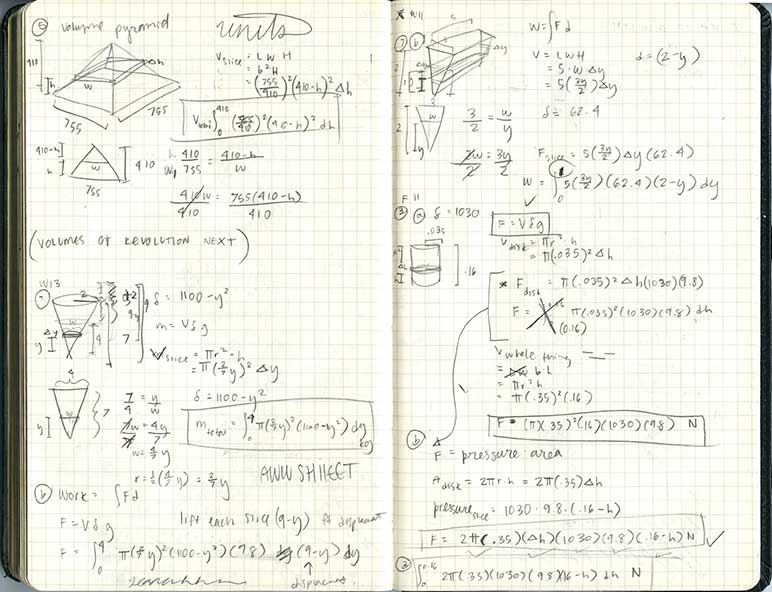 ⑤ volume pyramid
units
410
Δh
h
w
755
755
V slice = L W H
= b²H
= (755/410)²(410-h)² Δh
V total ∫₀⁴¹⁰ (755/410)²(410-h)² dh
410-h
h
410
755
w
h 410/755 = (410-h)/w
410w/410 = 755(410-h)/410
(VOLUMES OF REVOLUTION NEXT)
W13
2
7
9
Δy
y
4
δ = 1100 - y²
m = Vδg
V slice = πr²·h
= π(2/7 y)² Δy
δ = 1100 - y²
4
w
7
y
7/4 = y/w
7w/7 = 4y/7
w = 4/7 y
r = ½(4/7 y) = 2/7 y
m total = ∫₀⁴ π(2/7 y)²(1100-y²) dy
kg
AWW SHIIEET
ⓑ Work = ∫Fd
F = Vδg
lift each slice (9-y) ft displacement
F = ∫₀⁴ π(2/7 y)²(1100-y²)(9.8) dy (9-y) dy
displacement.
x W11
⑦ ⓑ
5
Δy
2
W = ∫Fd
V = L W H
d = (2-y)
= 5·w Δy
= 5(3y/2) Δy
δ = 62.4
3
w
2
y
3/2 = w/y
2w/2 = 3y/2
F slice = 5(3y/2) Δy (62.4)
W = ∫₀¹ 5(3y/2)(62.4)(2-y) dy
F 11
③ ⓐ δ = 1030
.035
Δh
.16
F = Vδg
V disk = πr²·h
= π(.035)² Δh
* F disk = π(.035)² Δh(1030)(9.8)
F = π(.035)²(1030)(9.8) dh
(0.16)
V whole thing
= b·h
= πr²h
= π(.035)²(.16)
F = (π)(.35)²(.16)(1030)(9.8) N
ⓑ
F = pressure·area
A disk = 2πr·h = 2π(.35)Δh
pressure slice = 1030·9.8·(.16-h)
F = 2π(.35)(Δh)(1030)(9.8)(.16-h) N
∫₀^0.16 2π(.35)(1030)(9.8)(.16-h) dh N